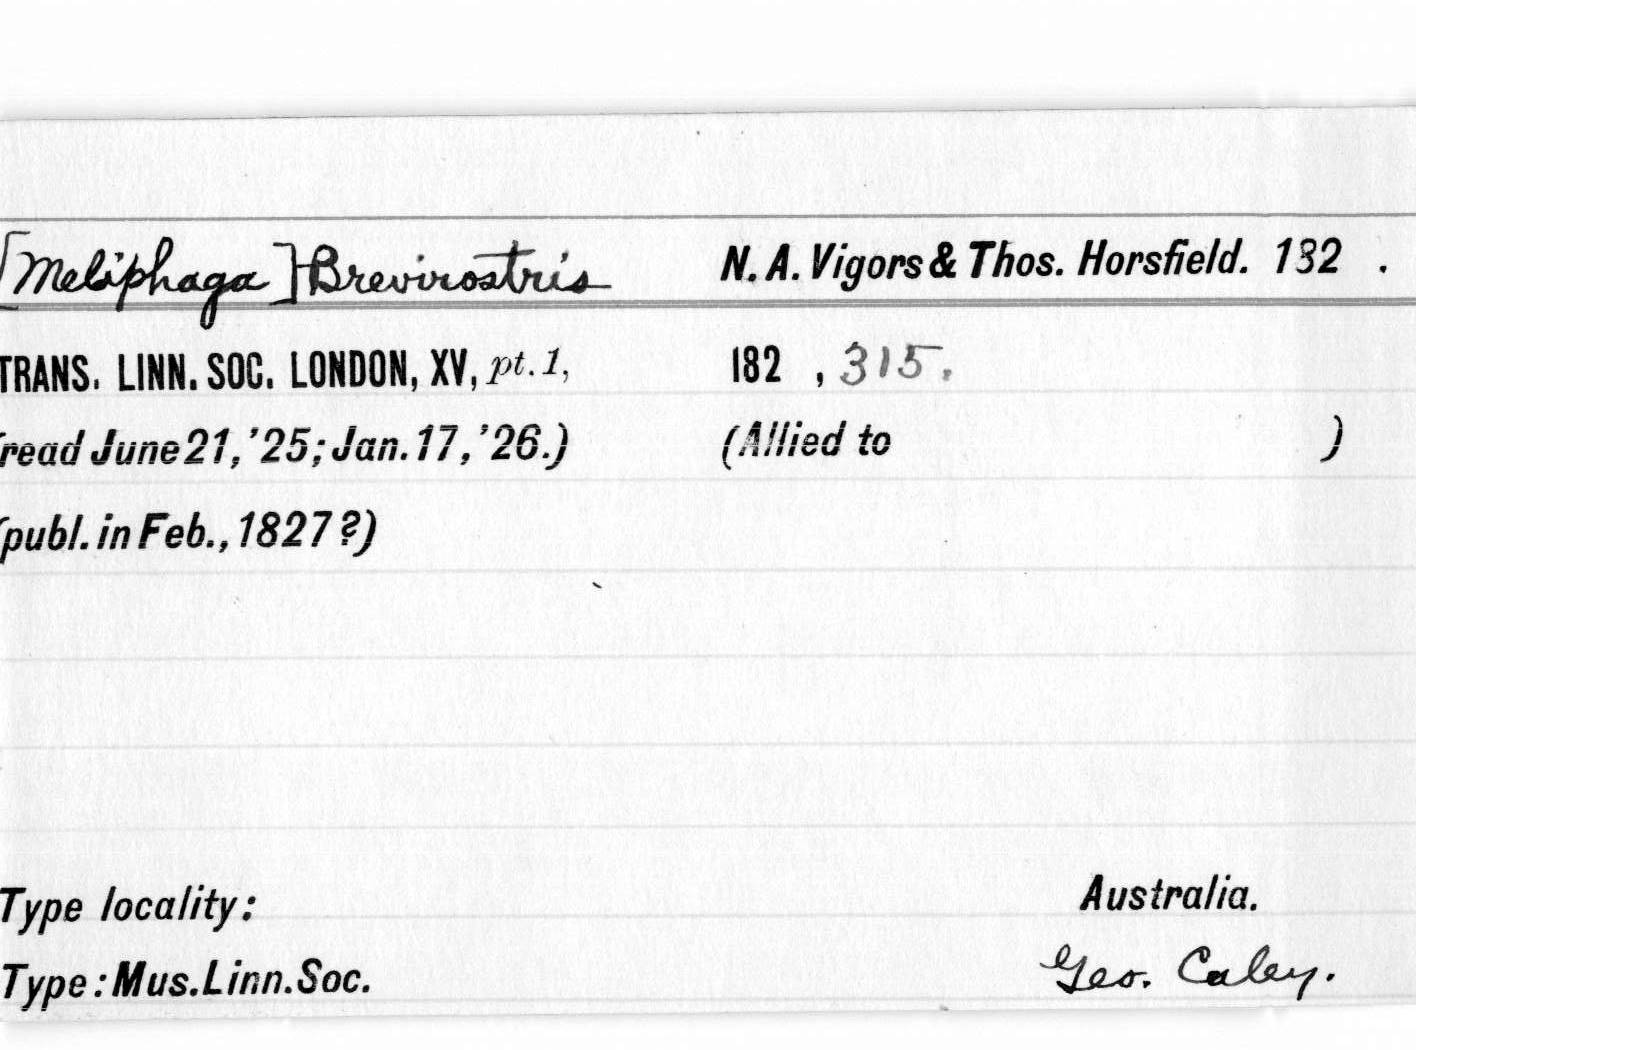 [Meliphaga] Brevirostris N. A. Vigors & Thos. Horsfield. 182 .
TRANS. LINN. SOC. LONDON, XV, pt. 1, 182 , 315.
(read June 21, '25; Jan. 17, '26.) (Allied to )
(publ. in Feb., 1827?)
Type locality: Australia.
Type: Mus. Linn. Soc. Geo. Caley.